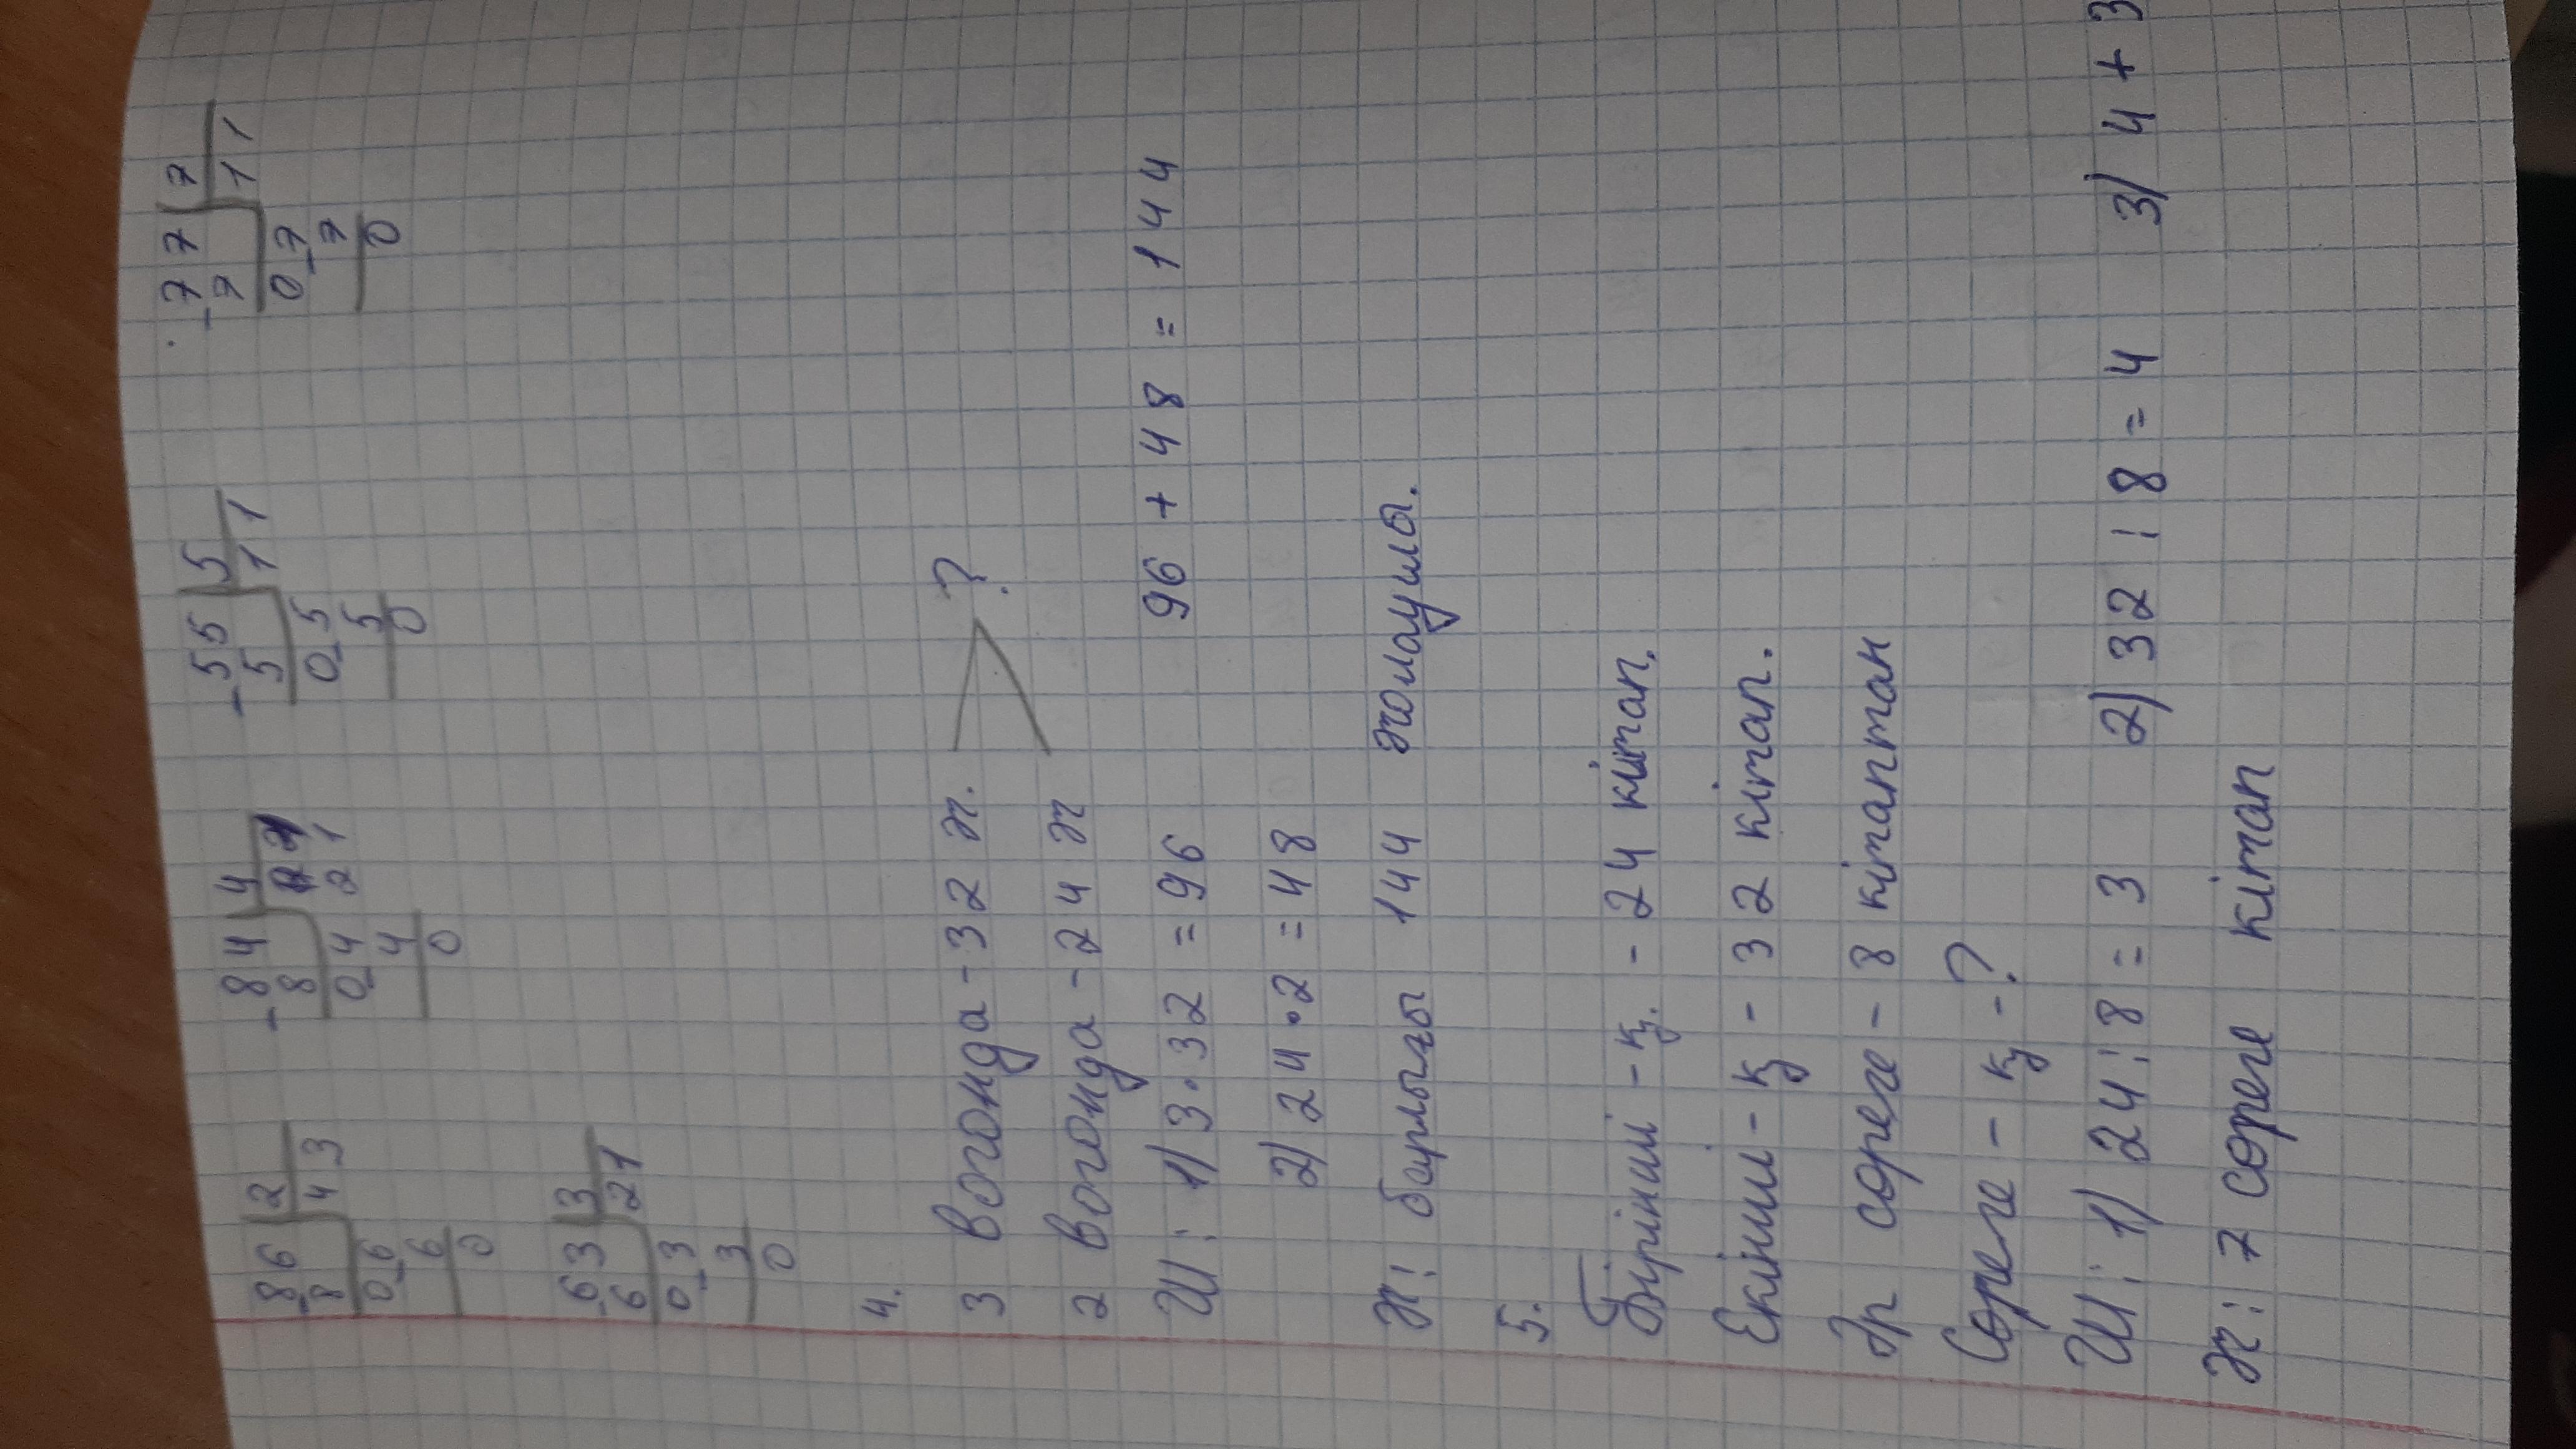 86 2 84 4 55 5 77 7
8 43 8 5 11 7 11
06 04 21 05 07
6 4 5 7
0 0 0 0
63 3
6 21
03
3
0
4.
3 вогонда - 32 ж. ?
2 вогонда - 24 ж
Ш: 1) 3 · 32 = 96 96 + 48 = 144
2) 24 · 2 = 48
Ж: барлығы 144 жолаушы.
5.
Бірінші - қ. - 24 кітап.
Екінші - қ - 32 кітап.
Әр сөреге - 8 кітаптан
Сөреге - қ - ?
Ш: 1) 24 : 8 = 3 2) 32 : 8 = 4 3) 4 + 3
Ж: 7 сөреге кітап